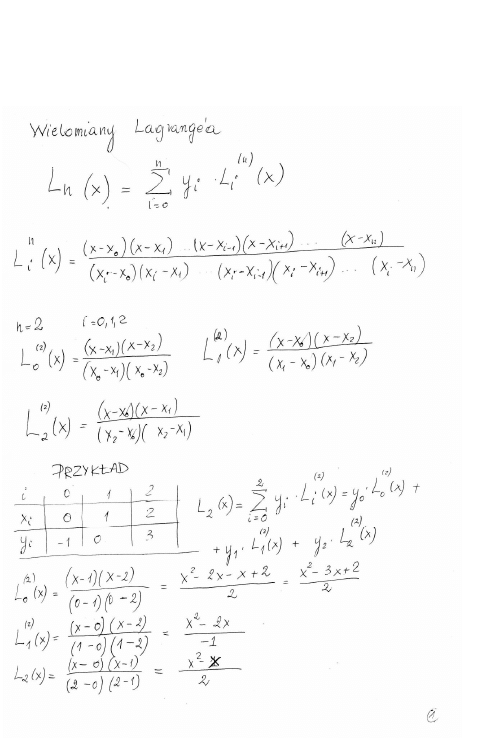 Wielomiany Lagrange'a
Ln (x) = Σ_{i=0}^{n} yi · Li^(n) (x)
Li^n (x) = (x-x0)(x-x1) ...(x-xi-1)(x-xi+1) ... (x-xn) / (xi-x0)(xi-x1) ... (xi-xi-1)(xi-xi+1) ... (xi-xn)
n=2 i=0,1,2
L0^(2) (x) = (x-x1)(x-x2) / (x0-x1)(x0-x2) L1^(2) (x) = (x-x0)(x-x2) / (x1-x0)(x1-x2)
L2^(2) (x) = (x-x0)(x-x1) / (x2-x0)(x2-x1)
PRZYKŁAD
i 0 1 2
xi 0 1 2
yi -1 0 3
L2 (x) = Σ_{i=0}^{2} yi · Li^(2) (x) = y0 · L0^(2) (x) +
+ y1 · L1^(2) (x) + y2 · L2^(2) (x)
L0^(2) (x) = (x-1)(x-2) / (0-1)(0-2) = x²-2x-x+2 / 2 = x²-3x+2 / 2
L1^(2) (x) = (x-0)(x-2) / (1-0)(1-2) = x²-2x / -1
L2 (x) = (x-0)(x-1) / (2-0)(2-1) = x²-x / 2